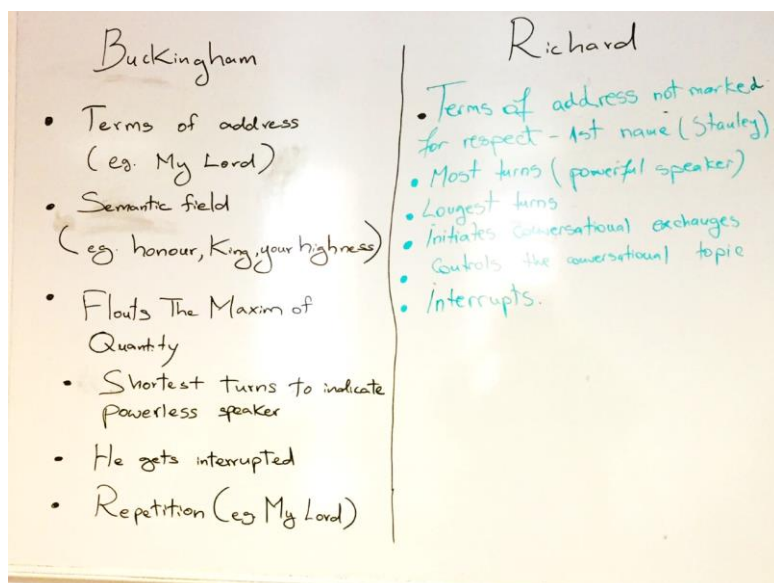 Buckingham
• Terms of address
(eg. My Lord)
• Semantic field
(eg. honour, King, your highness)
• Flouts The Maxim of
Quantity
• Shortest turns to indicate
powerless speaker
• He gets interrupted
• Repetition (eg My Lord)
Richard
• Terms of address not marked
for respect - 1st name (Stanley)
• Most turns (powerful speaker)
• Longest turns
• Initiates conversational exchanges
• Controls the conversational topic
• Interrupts.